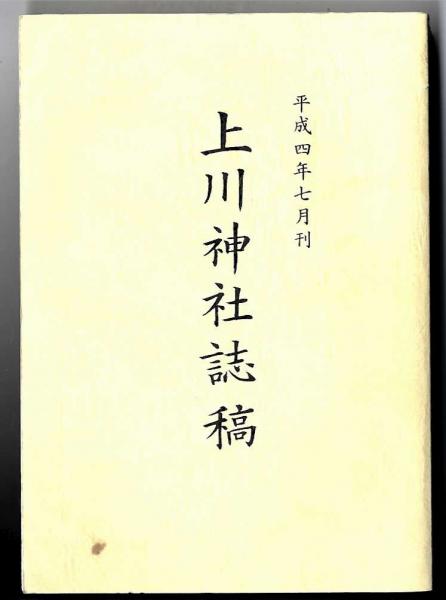 平成四年七月刊
上川神社誌稿